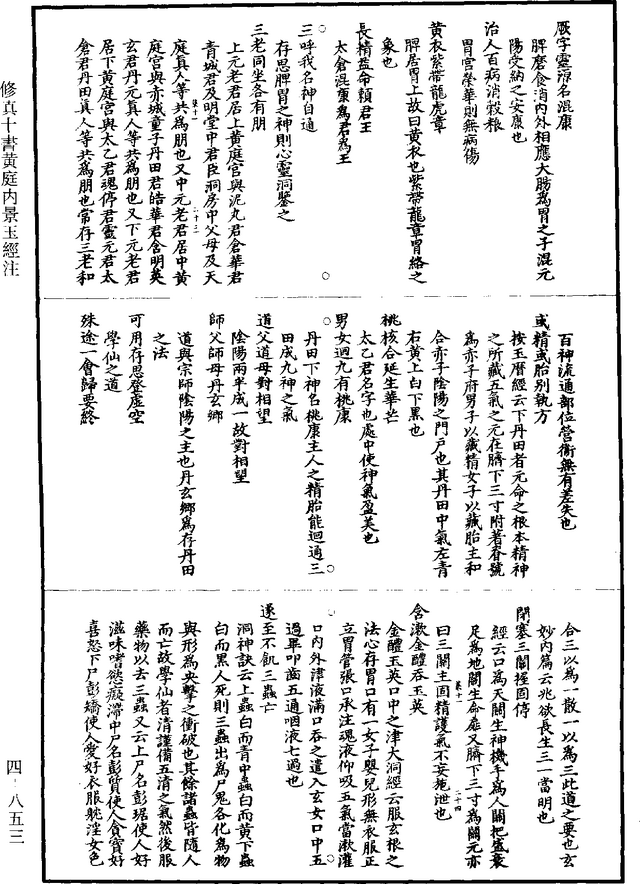 修真十書黃庭內景玉經注
四-八五三
厥字靈源名混康
脾磨食消內外相應大腸為胃之子混元
陽受納之安康也
治人百病消穀粮
胃宮榮華則無病傷
黃衣紫帶龍虎章
脾居胃上故曰黃衣也紫帶龍章胃絡之
象也
長精益命賴君王
太倉混康為君為王
三呼我名神自通
存思脾胃之神則心靈洞鑒之
三老同坐各有朋
上元老君居上黃庭宮與泥丸君倉華君
青城君及明堂中君臣洞房中父母及天
庭真人等共為朋也又中元老君居中黃
庭宮與赤城童子丹田君皓華君含明英
玄君丹元真人等共為朋也又下元老君
居下黃庭宮與太乙君魂停君靈元君太
倉君丹田真人等共為朋也常存三老和
百神流通部位營衛無有差失也
或精或胎別執方
按玉曆經云下丹田者元命之根本精神
之所藏五氣之元在臍下三寸附著脊號
為赤子府男子以藏精女子以藏胎主和
合赤子陰陽之門戶也其丹田中氣左青
右黃上白下黑也
桃核合延生華芒
太乙君名字也處中使神氣盈美也
男女迴九有桃康
丹田下神名桃康主人之精胎能迴通三
田成九神之氣
道父道母對相望
陰陽兩半成一故對相望
師父師母丹玄鄉
道與宗師陰陽之主也丹玄鄉為存丹田
之法
可用存思登虛空
學仙之道
殊途一會歸要終
合三以為一散一以為三此道之要也玄
妙內篇云兆欲長生三一當明也
閉塞三關握固停
經云口為天關生神機手為人關把盛衰
足為地關生命扉又臍下三寸為關元亦
曰三關主固精護氣不妄施泄也
含漱金醴吞玉英
金醴玉英口中之津大洞經云服玄根之
法心存胃口有一女子嬰兒形無衣服正
立胃管張口承注魂液仰吸五氣當漱灌
口內外津液滿口吞之遣入玄女口中五
過畢叩齒五通咽液七過也
遂至不飢三蟲亡
洞神訣云上蟲白而青中蟲白而黃下蟲
白而黑人死則三蟲出為尸鬼各化為物
與形為央擊之衝破也其餘諸蟲皆隨人
而亡故學仙者清謹備五清之氣然後服
藥物以去三蟲又云上尸名彭琚使人好
滋味嗜慾癡滯中尸名彭質使人貪寶好
喜怒下尸彭矯使人愛好衣服躭淫女色